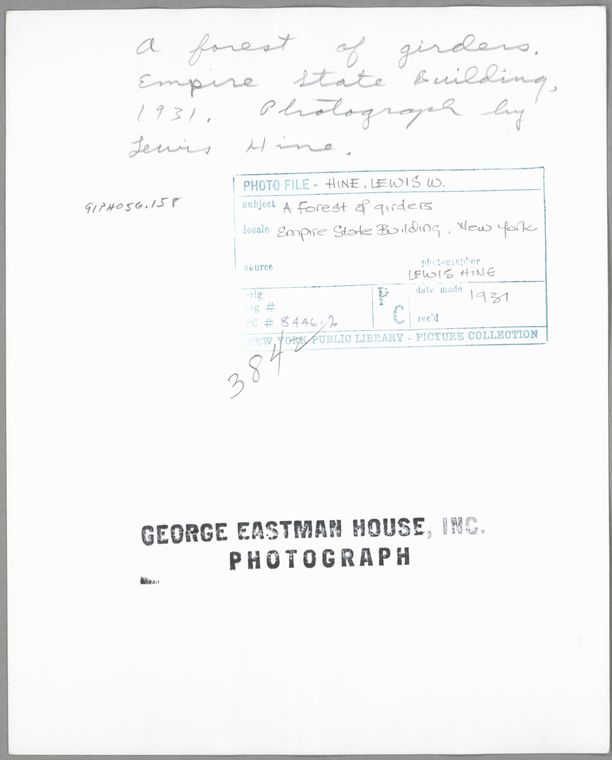 A forest of girders.
Empire State Building,
1931. Photograph by
Lewis Hine.
91PH056.158
PHOTO FILE - HINE, LEWIS W.
subject A Forest of girders
locale Empire State Building, New York
source
photographer
LEWIS HINE
orig
neg #
PC # 8446.2
C
date made 1931
rec'd
NEW YORK PUBLIC LIBRARY - PICTURE COLLECTION
384
GEORGE EASTMAN HOUSE, INC.
PHOTOGRAPH